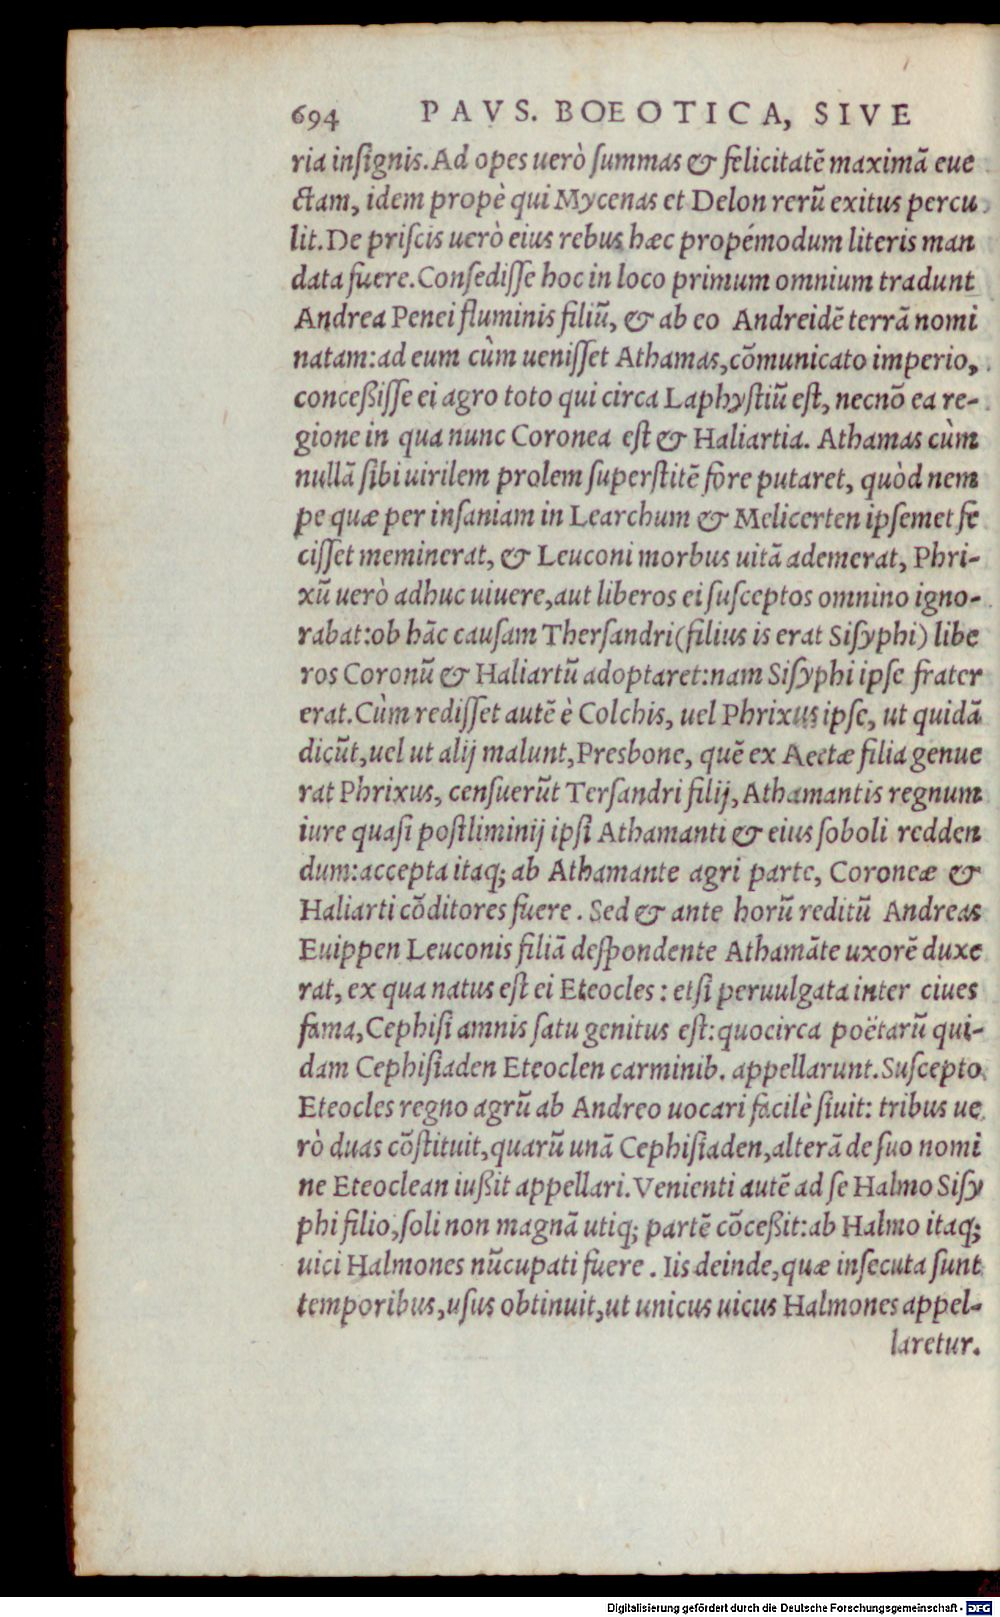 694 PAVS. BOEOTICA, SIVE
ria inſignis. Ad opes uerò ſummas & felicitatē maximā eue
ctam, idem propè qui Mycenas et Delon rerū exitus percu
lit. De priſcis uerò eius rebus hæc propémodum literis man
data fuere. Conſediſſe hoc in loco primum omnium tradunt
Andrea Penei fluminis filiū, & ab eo Andreidē terrā nomi
natam: ad eum cùm ueniſſet Athamas, cōmunicato imperio,
conceßiſſe ei agro toto qui circa Laphyſtiū eſt, necnō ea re-
gione in qua nunc Coronea eſt & Haliartia. Athamas cùm
nullā ſibi uirilem prolem ſuperſtitē fore putaret, quòd nem
pe quæ per inſaniam in Learchum & Melicerten ipſemet fe
ciſſet meminerat, & Leuconi morbus uitā ademerat, Phri-
xū uerò adhuc uiuere, aut liberos ei ſuſceptos omnino igno-
rabat: ob hāc cauſam Therſandri (filius is erat Siſyphi) libe
ros Coronū & Haliartū adoptaret: nam Siſyphi ipſe frater
erat. Cùm rediſſet autē è Colchis, uel Phrixus ipſe, ut quidā
dicūt, uel ut alij malunt, Presbone, quē ex Aeetæ filia genue
rat Phrixus, cenſuerūt Terſandri filij, Athamantis regnum
iure quaſi poſtliminij ipſi Athamanti & eius ſoboli redden
dum: accepta itaq; ab Athamante agri parte, Coroneæ &
Haliarti cōditores fuere. Sed & ante horū reditū Andreas
Euippen Leuconis filiā deſpondente Athamāte uxorē duxe
rat, ex qua natus eſt ei Eteocles: etſi peruulgata inter ciues
fama, Cephiſi amnis ſatu genitus eſt: quocirca poëtarū qui-
dam Cephiſiaden Eteoclen carminib. appellarunt. Suſcepto
Eteocles regno agrū ab Andreo uocari facilè ſiuit: tribus ue
rò duas cōſtituit, quarū unā Cephiſiaden, alterā de ſuo nomi
ne Eteoclean iußit appellari. Venienti autē ad ſe Halmo Siſy
phi filio, ſoli non magnā utiq; partē cōceßit: ab Halmo itaq;
uici Halmones nūcupati fuere. Iis deinde, quæ inſecuta ſunt
temporibus, uſus obtinuit, ut unicus uicus Halmones appel-
laretur.
Digitalisierung gefördert durch die Deutsche Forschungsgemeinschaft - DFG